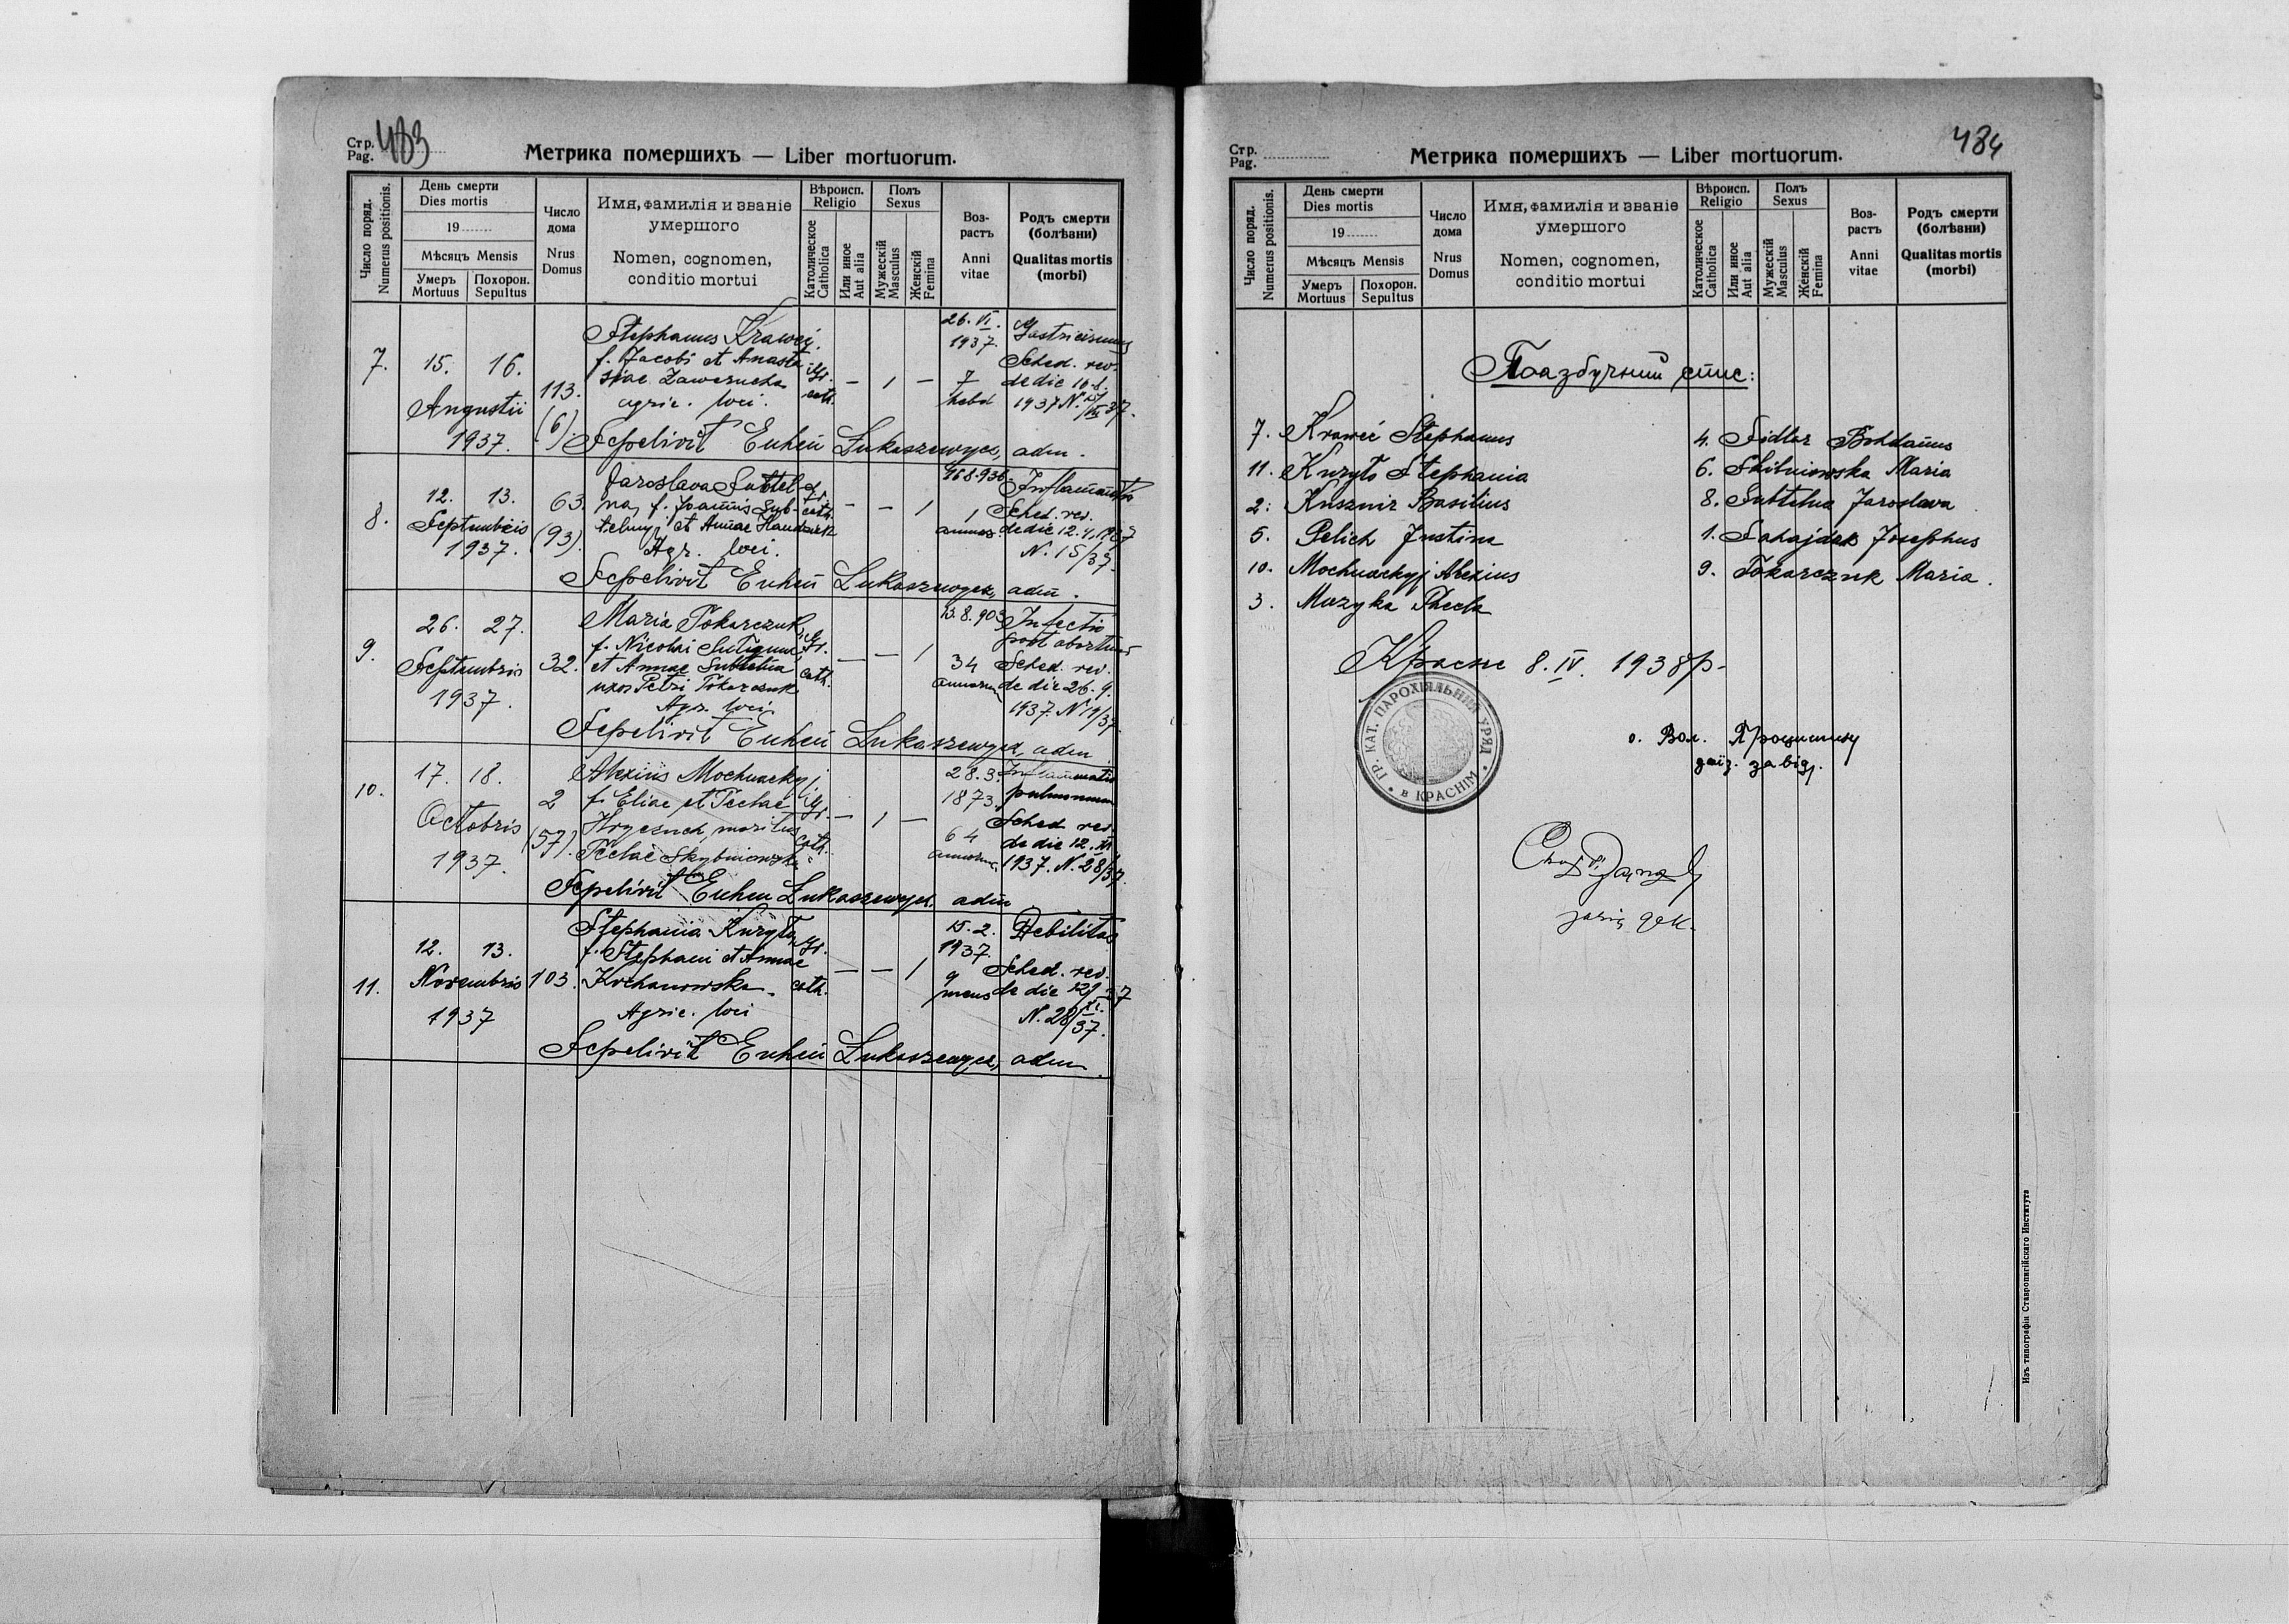 Стр. 483
Pag.
Метрика помершихъ — Liber mortuorum.
Число поряд.
Numerus positionis.
День смерти
Dies mortis
19
Мѣсяцъ Mensis
Умеръ
Mortuus
Похорон.
Sepultus
Число
дома
Nrus
Domus
Имя, фамилія и званіе
умершого
Nomen, cognomen,
conditio mortui
Вѣроисп.
Religio
Католическое
Catholica
Или иное
Aut alia
Полъ
Sexus
Мужескій
Masculus
Женскій
Femina
Воз-
растъ
Anni
vitae
Родъ смерти
(болѣзни)
Qualitas mortis
(morbi)
7. 15. 16.
Augustii
1937.
113.
(6)
Stephanus Krawej.
f. Jacobi et Anasta
siae Zawerncha
agric. loci.
gr.
cath.
— 1 —
26. VI.
1937.
7
hebd
Gastricismus
Sched. rev.
de die 16.8.
1937 N.
Sepelivit Euhen Łukaszewycz, adm.
8. 12. 13.
Septembris
1937.
63.
(93).
Jaroslava Subtel
na, f. Joannis Sub-
telnyj et Annae
Agr. loci.
gr.
cath.
— — 1
1
annus
Sched. rev.
de die 12.
N. 15/37.
Sepelivit Euhen Lukaszewycz, adm.
9. 26. 27.
Septembris
1937.
32.
Maria Tokarczuk,
f. Nicolai
et Annae Subtelna
uxor Petri Tokarczuk
Agr. loci
gr.
cath.
— — 1
13.8.903
34
annorum
Infectio
post abortum
Sched. rev.
de die 26.9.
1937. N 19/37
Sepelivit Euhen Lukaszewycz, adm
10. 17. 18.
Octobris
1937.
2
(57).
Alexius Mochnackyj
f. Eliae et Teclae
Hryczuch, maritus
Teclae Skybniewska
gr.
cath.
— 1 —
28.3.
1873.
64
annorum
Inflammatio
pulmonum
Sched. rev.
de die 12.
1937. N. 28/37.
Sepelivit Euhen Lukaszewycz. adm
11. 12. 13.
Novembris
1937
103.
Stephania Kuryło,
f. Stephani et Annae
Kochanowska.
Agric. loci
gr.
cath.
— — 1
15.2.
1937.
9
mens
Debilitas
Sched. rev.
de die
N. 28/37.
Sepelivit Euhen Lukaszewycz, adm.
Стр.
Pag.
Метрика помершихъ — Liber mortuorum.
484
Число поряд.
Numerus positionis.
День смерти
Dies mortis
19
Мѣсяцъ Mensis
Умеръ
Mortuus
Похорон.
Sepultus
Число
дома
Nrus
Domus
Имя, фамилія и званіе
умершого
Nomen, cognomen,
conditio mortui
Вѣроисп.
Religio
Католическое
Catholica
Или иное
Aut alia
Полъ
Sexus
Мужескій
Masculus
Женскій
Femina
Воз-
растъ
Anni
vitae
Родъ смерти
(болѣзни)
Qualitas mortis
(morbi)
Поазбучний спис:
7. Kraweć Stephanus
11. Kuryło Stephania
2. Kusznir Basilius
5. Pelich Justina
10. Mochnackyj Alexius
3. Muzyka Thecla
4. Sidlar Bohdanus
6. Skibniowska Maria
8. Subtelna Jaroslava
1. Sahajdak Josephus
9. Tokarczuk Maria.
Красне 8. IV. 1938 р.
ГР. КАТ. ПАРОХІЯЛЬНИЙ УРЯД
в КРАСНІМ
о. Вол.
завід.
Изъ типографіи Ставропигійскаго Института